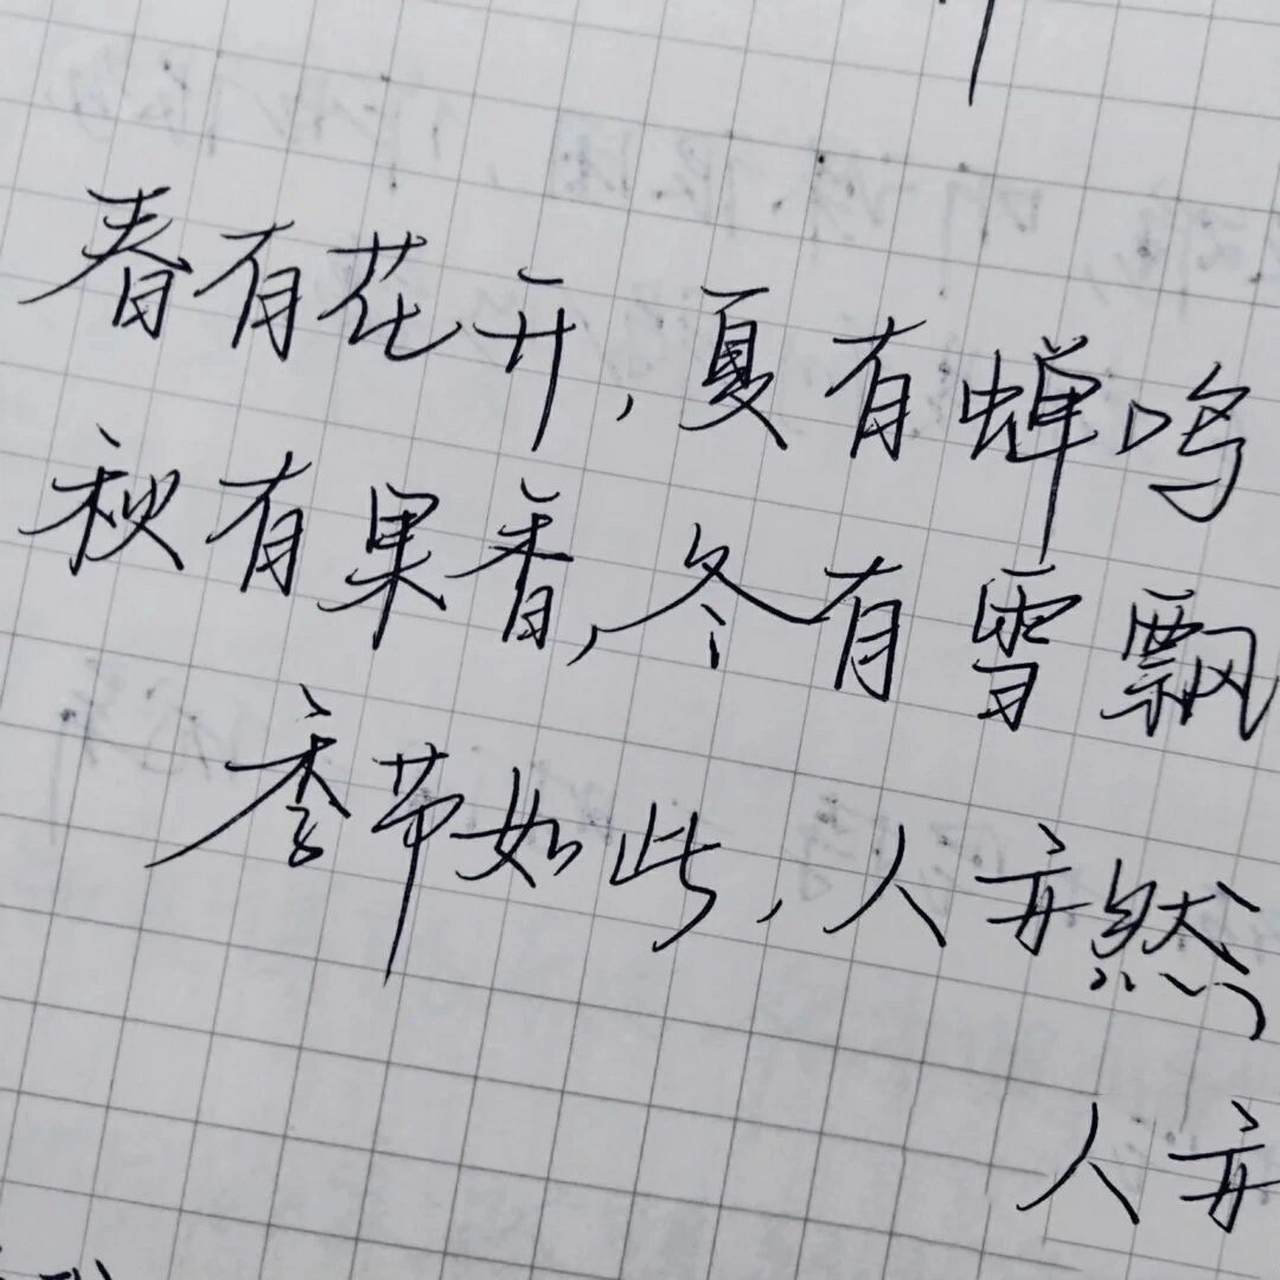 春有花开,夏有蝉鸣
秋有果香,冬有雪飘
季节如此,人亦然
人亦